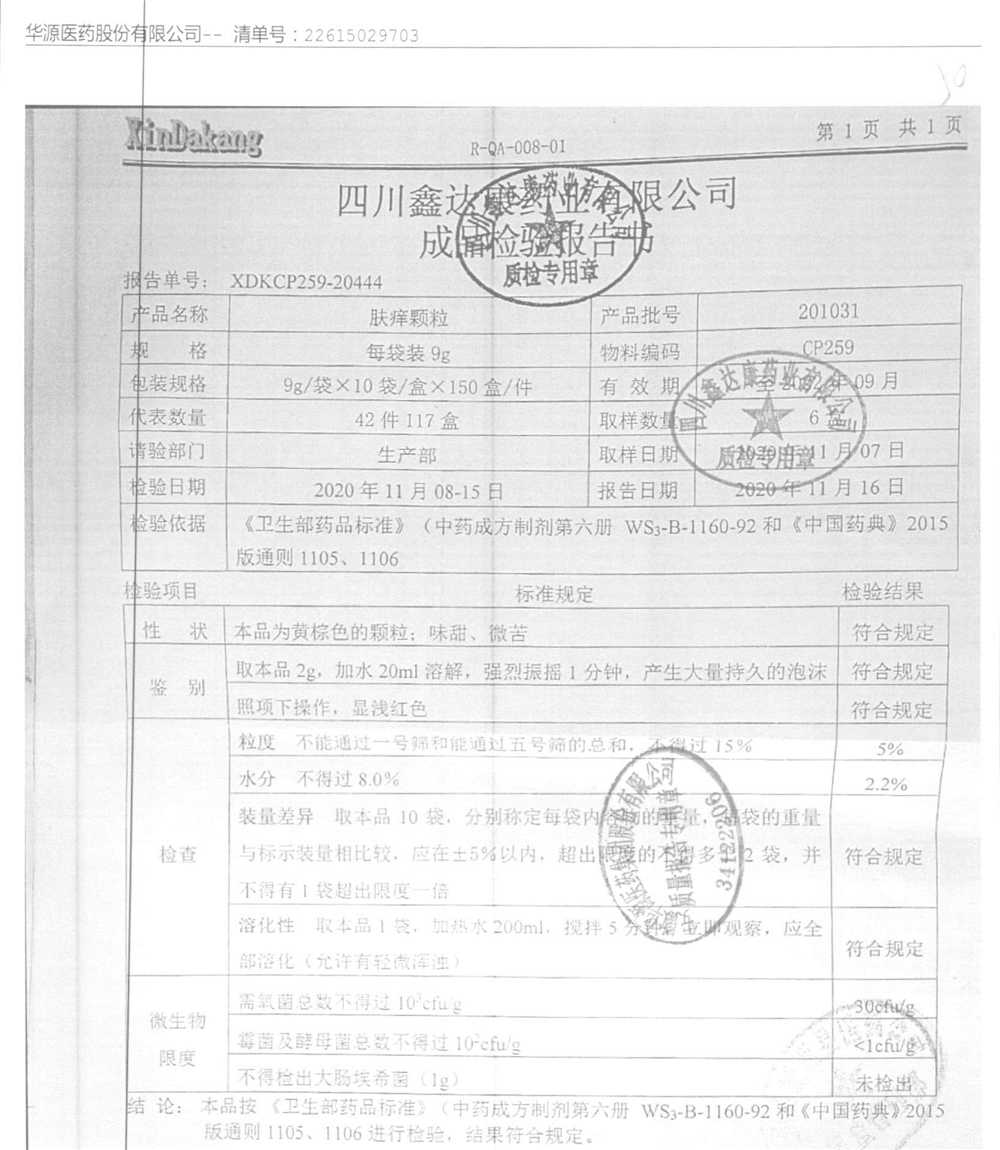 华源医药股份有限公司-- 清单号：22615029703
XinDakang
R-QA-008-01
第 1 页 共 1 页
四川鑫达康药业有限公司
成品检验报告书
四川鑫达康药业有限公司
质检专用章
报告单号： XDKCP259-20444
产品名称 肤痒颗粒 产品批号 201031
规 格 每袋装 9g 物料编码 CP259
包装规格 9g/袋×10 袋/盒×150 盒/件 有 效 期 至 2022 年 09 月
代表数量 42 件 117 盒 取样数量 6
请验部门 生产部 取样日期 2020 年 11 月 07 日
检验日期 2020 年 11 月 08-15 日 报告日期 2020 年 11 月 16 日
四川鑫达康药业有限公司
质检专用章
检验依据 《卫生部药品标准》（中药成方制剂第六册 WS₃-B-1160-92 和《中国药典》2015
版通则 1105、1106
检验项目 标准规定 检验结果
性 状 本品为黄棕色的颗粒；味甜、微苦 符合规定
鉴 别 取本品 2g，加水 20ml 溶解，强烈振摇 1 分钟，产生大量持久的泡沫 符合规定
照项下操作，显浅红色 符合规定
检查 粒度 不能通过一号筛和能通过五号筛的总和，不得过 15% 5%
水分 不得过 8.0% 2.2%
装量差异 取本品 10 袋，分别称定每袋内容物的重量，每袋的重量
与标示装量相比较，应在±5%以内，超出限度的不得多于 2 袋，并 符合规定
不得有 1 袋超出限度一倍
溶化性 取本品 1 袋，加热水 200ml，搅拌 5 分钟，立即观察，应全
部溶化（允许有轻微浑浊） 符合规定
微生物
限度
需氧菌总数不得过 10³cfu/g 30cfu/g
霉菌及酵母菌总数不得过 10²cfu/g <1cfu/g
不得检出大肠埃希菌（1g） 未检出
结 论： 本品按 《卫生部药品标准》（中药成方制剂第六册 WS₃-B-1160-92 和《中国药典》2015
版通则 1105、1106 进行检验，结果符合规定。